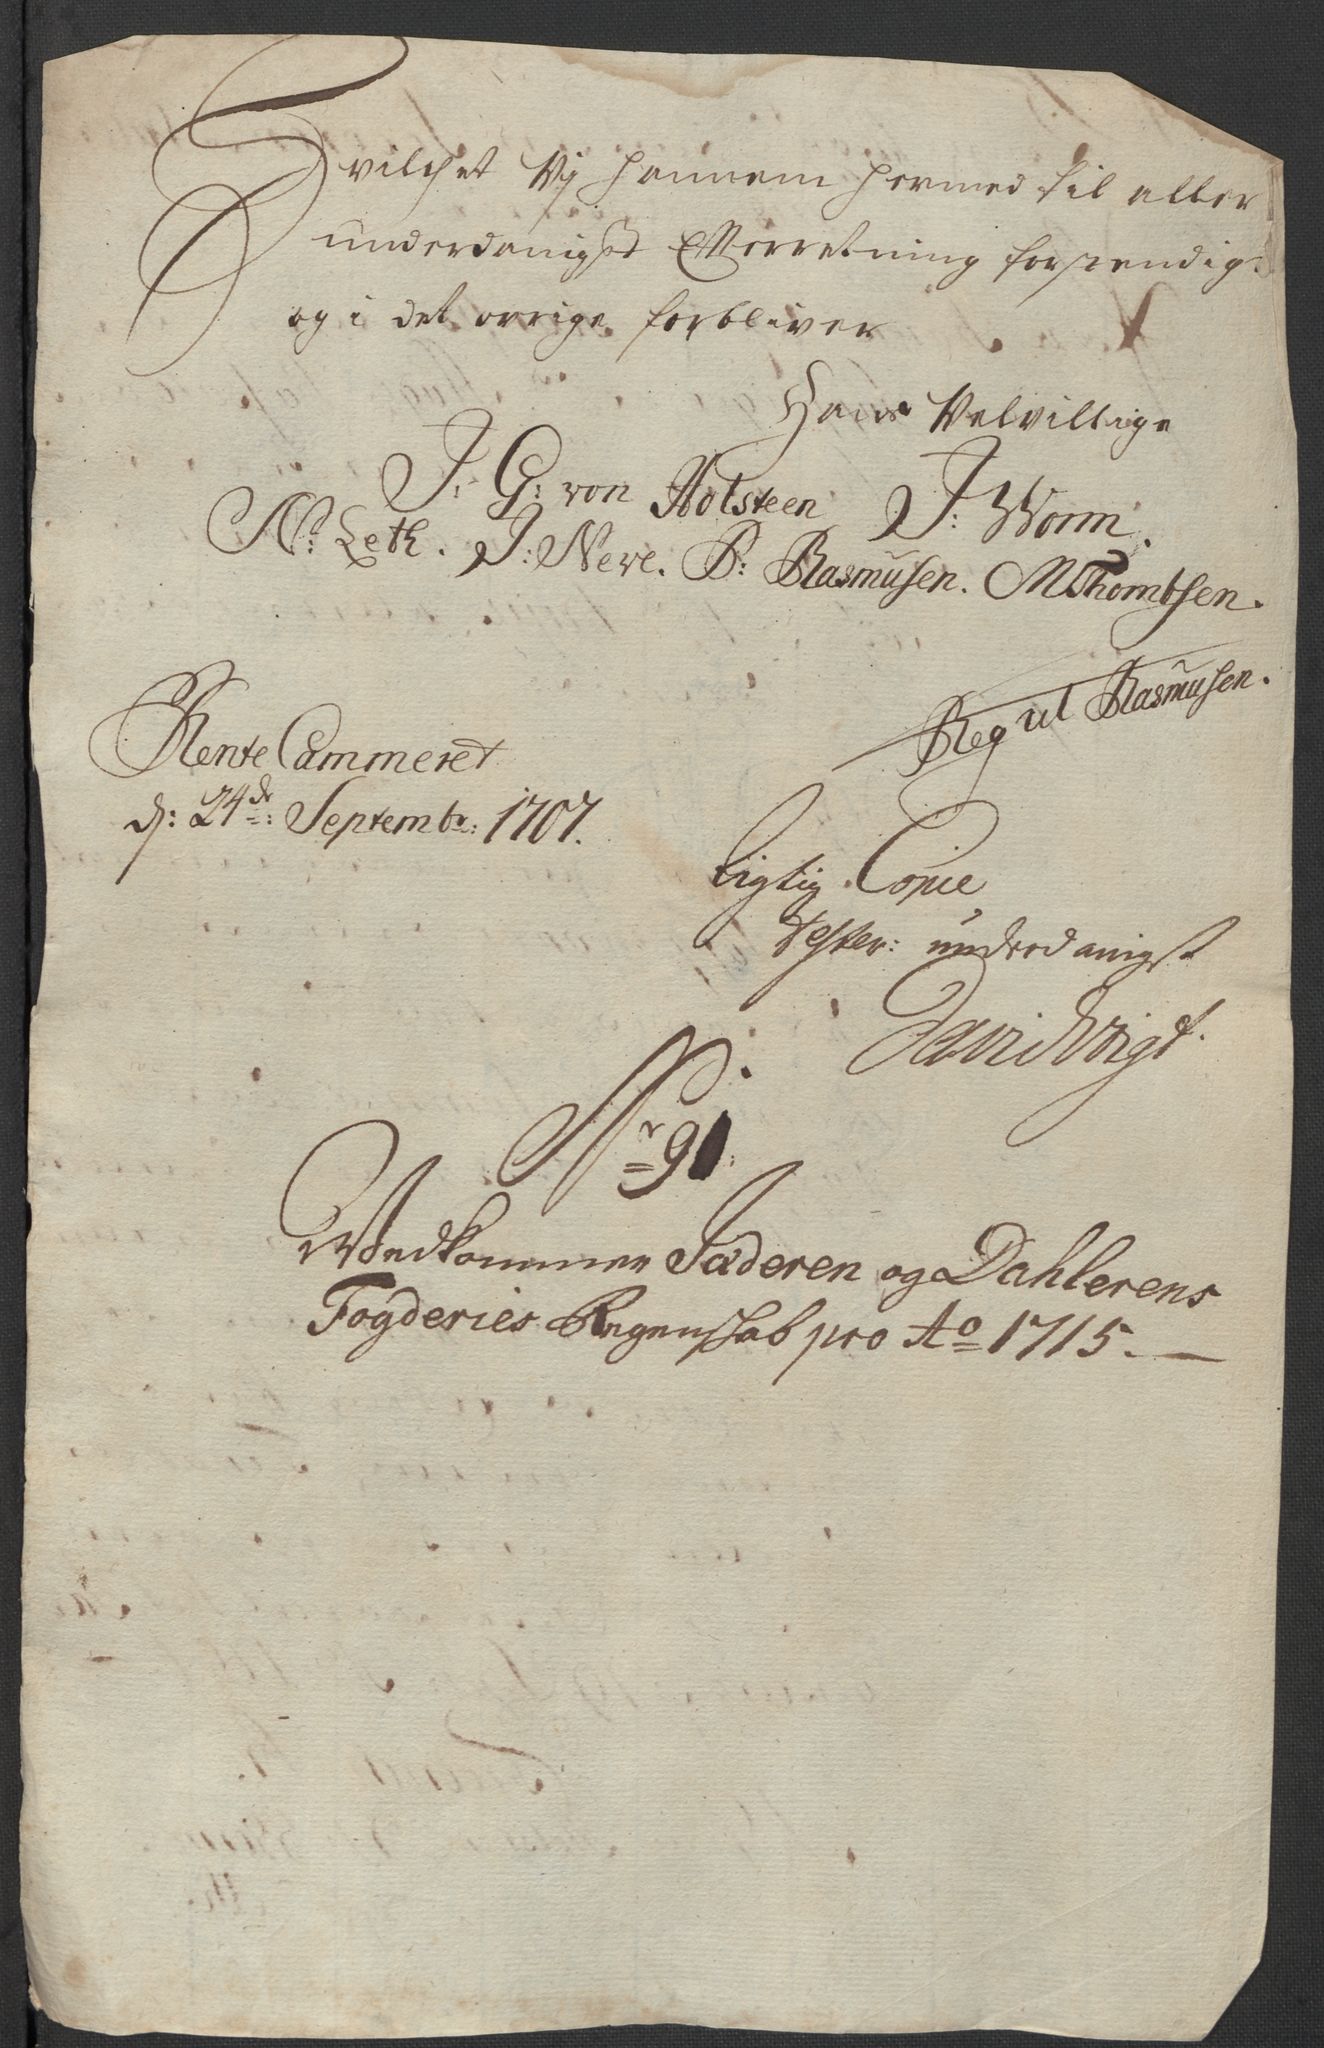 Hvilchet Vj hannem hermed til aller
underdanigst Efterretning forstendig:
og i det öfrige forbliver
Hans Velvillige
J: G: von Holsteen J: Worm.
N: Leth. J: Neve. P: Rasmusen. M Thombsen.
Reg ut Rasmusen.
Rente Cammeret
d: 24de: Septembr: 1707.
Rigtig Copie
Tester: underdanigst
David Voigt.
Nr 91.
Vedkommer Jæderen og Dahlerens
Fogderies Regenschab pro Ao 1715.